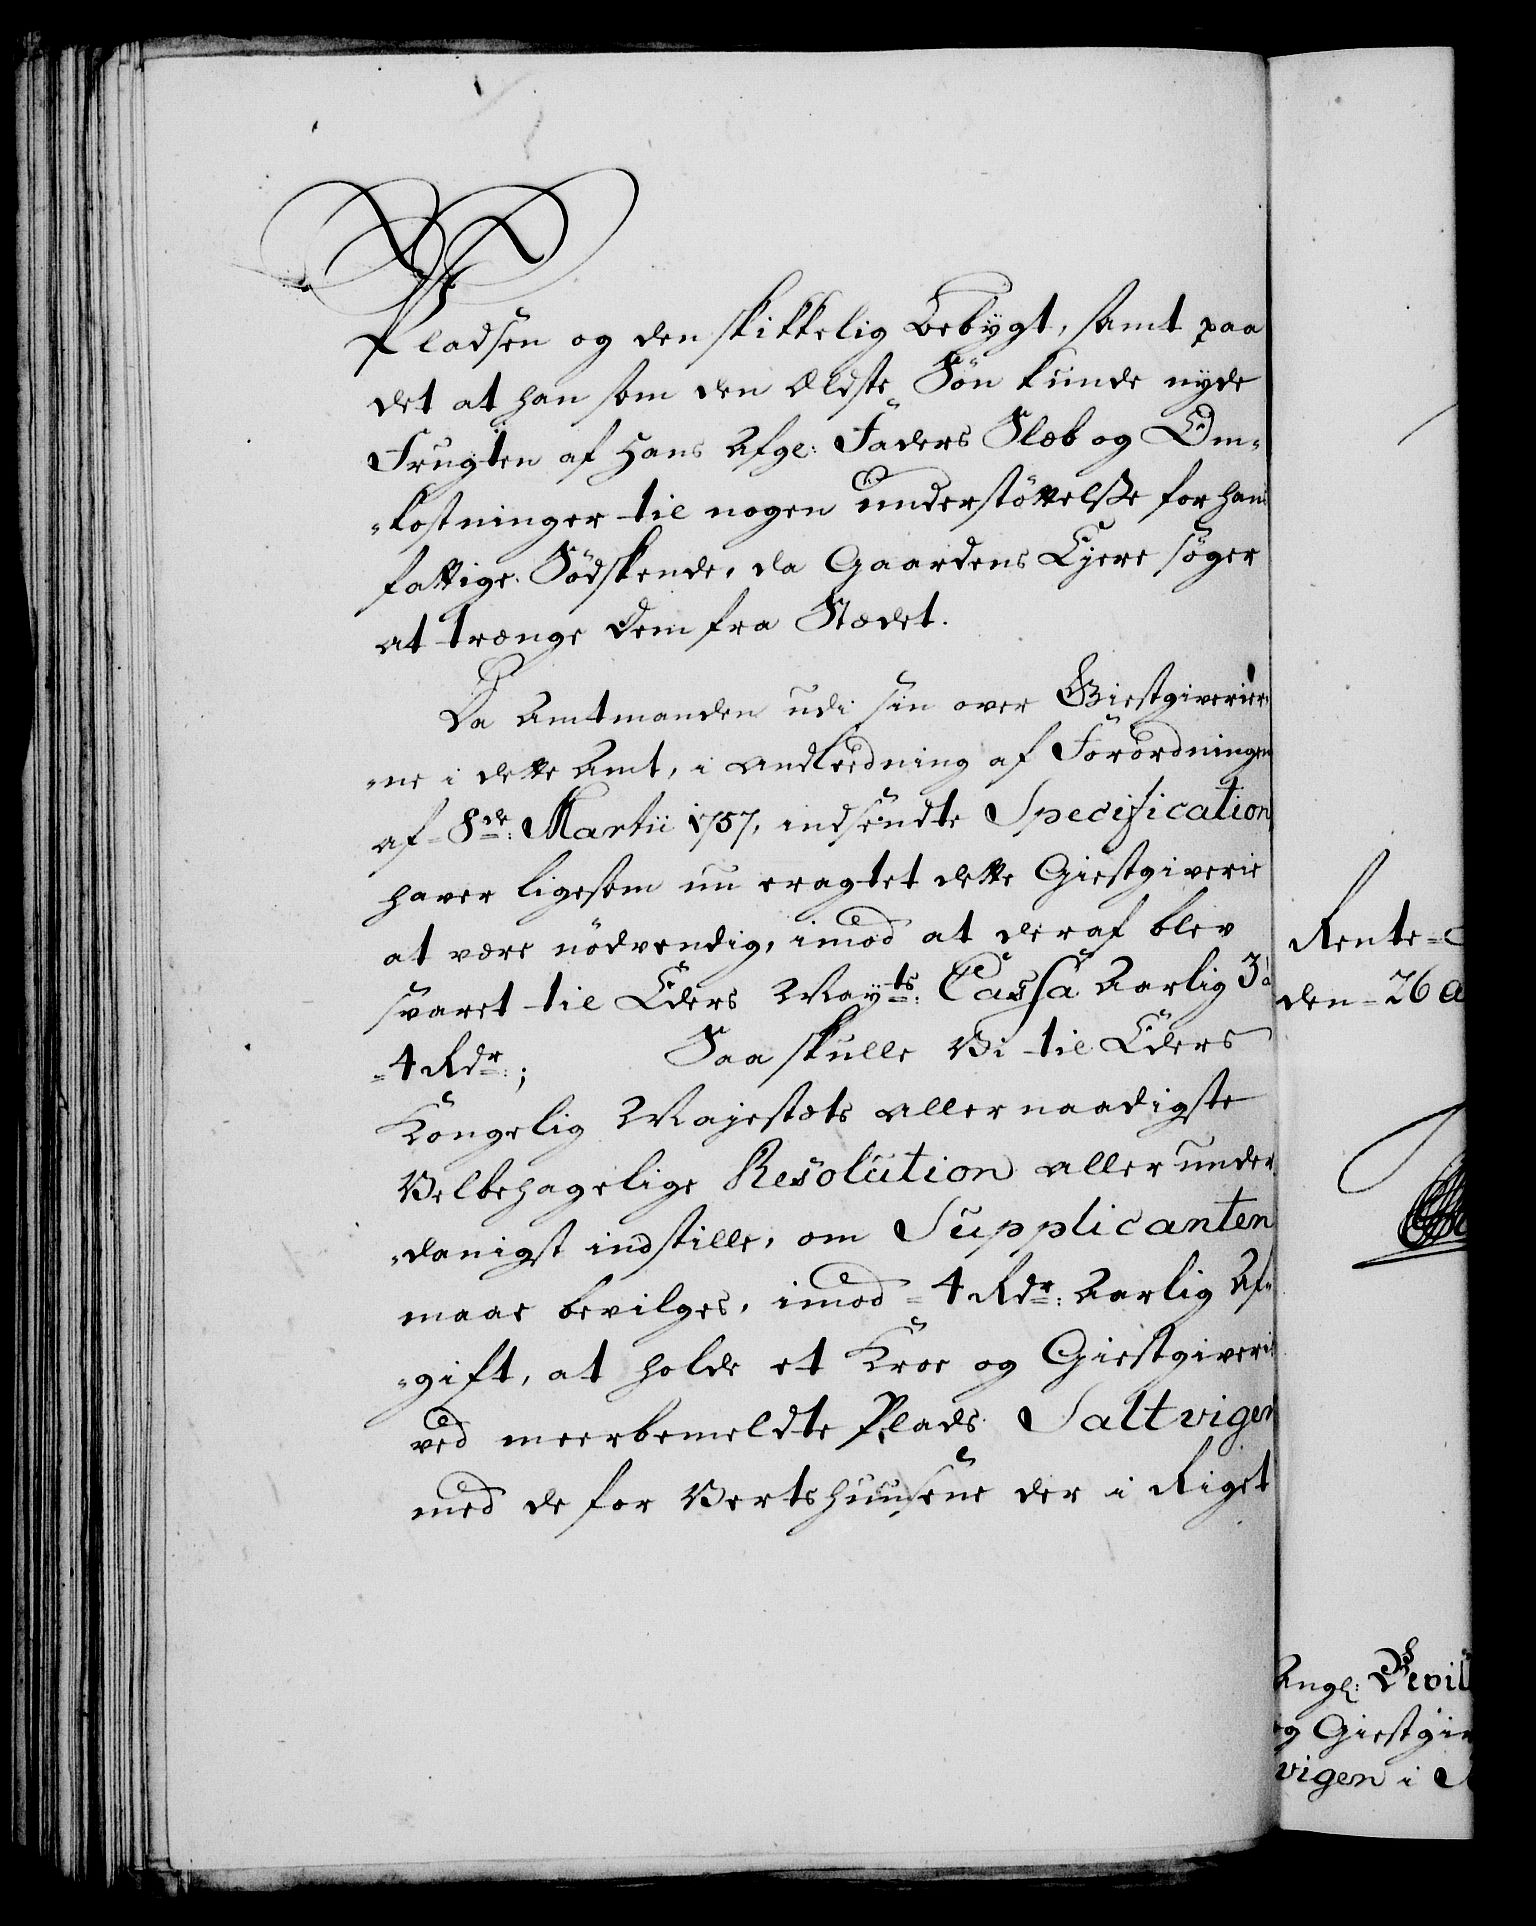 Pladsen og den skikkelig bebygt, samt paa
det at han som den Ældste Søn kunde nyde
Frugten af Hans Afg: Faders Slæb og Om-
-kostninger til nogen understøttelsse for hans
fattige Sødskende, da Gaardens Ejere søger
at trænge dem fra Stædet.
Da Amtmanden udi sin over Giestgiverier-
-ne i dette Amt, i anledning af Forordningen
af 8de: Martii 1757, indsendte Specification
haver ligesom nu eragtet dette Giestgiverie
at være nødvendig, imod at deraf blev
svaret til Eders Mayts: Cassa Aarlig 3 à
4 Rdr:; Saa skulle Vi til Eders
Kongelig Majestæts allernaadigste
Velbehagelige Resolution allerunder-
-danigst indstille, om Supplicanten
maae bevilges, imod 4 Rdr: Aarlig Af-
-gift, at holde et Kroe og Giestgiverie
ved meerbemeldte Plads Saltvigen
med de for Vertshuusene der i Riget
Rente-C
den 26 A
Ang: Bevil
og Giestgiv
vigen i